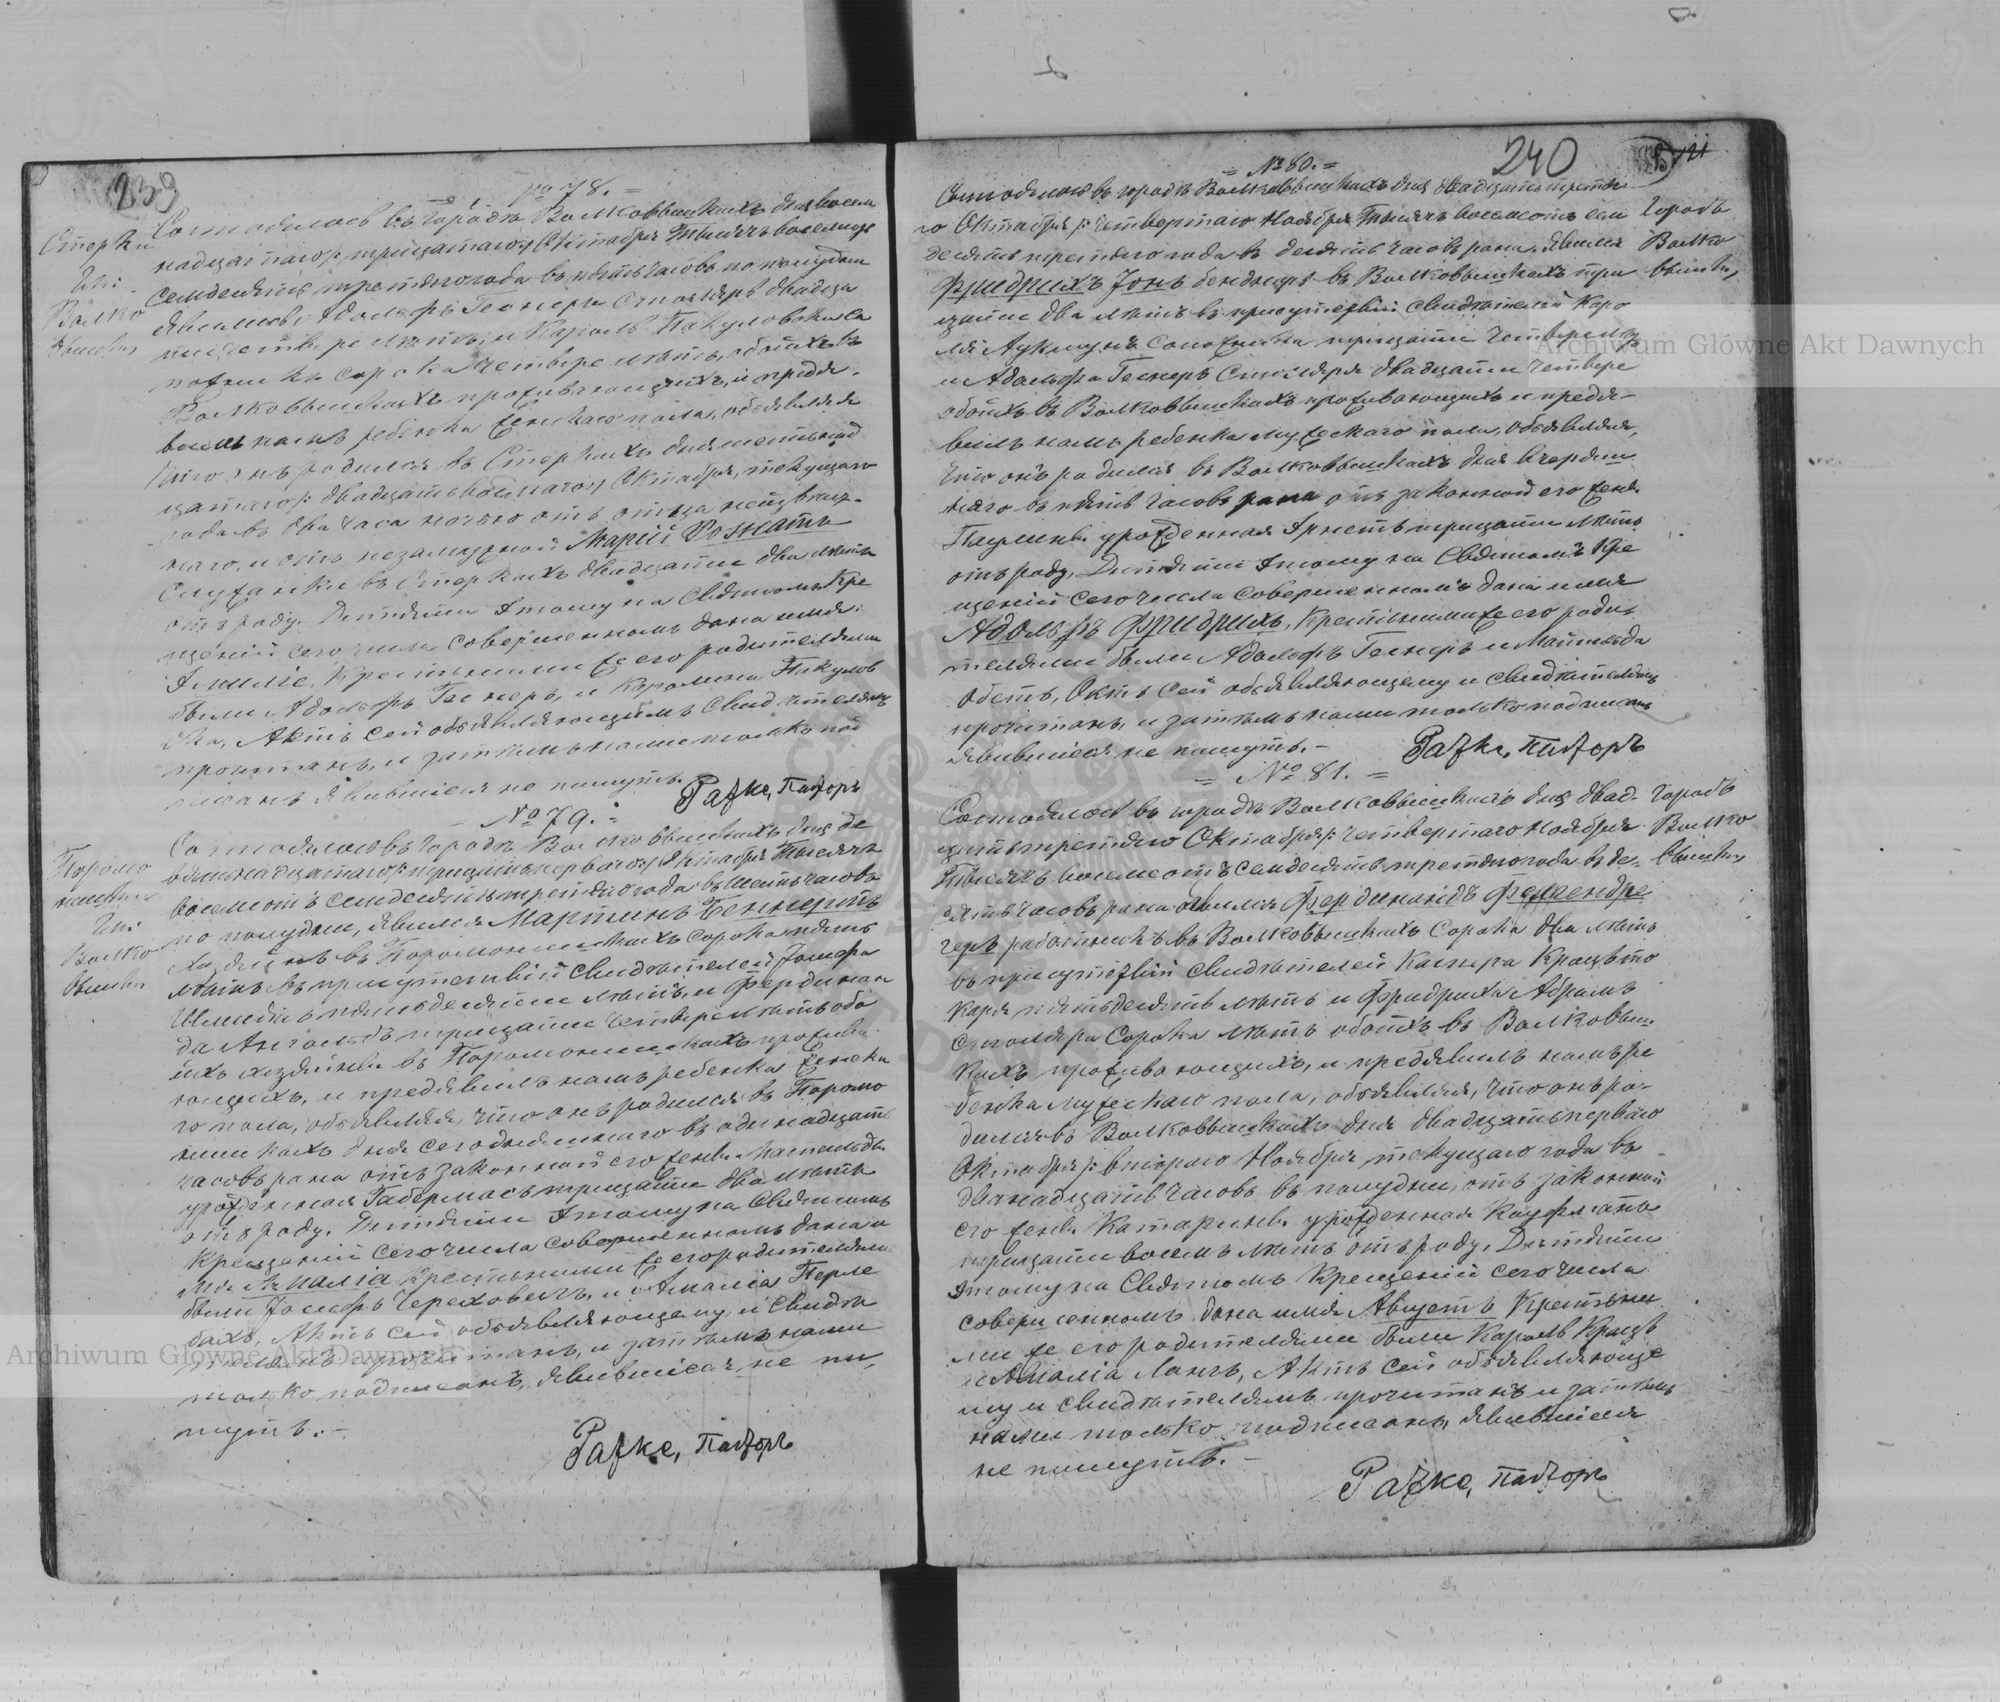 239
№ 78. =
Стерки
Гмі:
Волко
вышки,
Состоялось въ городѣ Волковышкахъ дня восем
надцатаго /: тридцатаго :/ Октября Тысяча восемьсотъ
семдесятъ третяго года въ пять часовъ по полудни
Явились Адольфъ Гескеръ Столяръ двадца
ти четвере лѣтъ, и Кароль Пакуловски Са
пожникъ сорока четвере лѣтъ, обоихъ въ
Волковышкахъ проживающихъ, и предя-
вилъ намъ ребенка женскаго пола, объявляя
что онъ родился въ Стеркахъ дня шестьнад
цатаго /: двадцать восмаго :/ Октября, текущаго
года въ два часа ночью отъ отца неизвѣст-
наго, и отъ незамужной Маріи Рознатъ
Служанки въ Стеркахъ двадцати два лѣтъ
отъ роду. Дитяти этому на Святомъ Кре
щеніи сего числа совершенномъ дана имя
Эмиліе, Крестными же его родителями
были Адольфъ Гескеръ, и Каролина Пакулов
ска, Актъ сей объявляющимъ Свидѣтелямъ
прочитанъ, и затѣмъ нами только под
писанъ Явившіеся не пишутъ.
Ражке, Пасторъ
№ 79. =
Поромо
нишки
Гмі:
Волко
вышки
Состоялось въ городѣ Волковышкахъ дня де
вятнадцатаго /: тридцать перваго :/ Октября Тысяча
восемсотъ семдесятъ третяго года въ шесть часовъ
по полудни, явился Мартинъ Беннертъ
Хозяинъ въ Поромонишкахъ сорока пять
лѣтъ въ присутствіи свидѣтелей Іозефа
Шмидтъ пятьдесяти лѣтъ, и Фердинан
да Ангольдъ тридцати четвере лѣтъ обо
ихъ хозяйновъ въ Поромонишкахъ прожива
ющихъ, и предявилъ намъ ребенка женска
го пола, объявляя, что онъ родился въ Поромо
нишкахъ дня сегодняшнаго въ одиннадцать
часовъ рана отъ законной его жены Матильды
урожденная Габермасъ тридцати два лѣтъ
отъ роду. Дитяти этому на Святомъ
Крещеніи сего числа совершенномъ дана и
мя Амалія Крестьними же его родителями
были Іозефъ Череховичъ, и Амалія Перле
бахъ, Актъ сей объявляющему и Свидѣ
телямъ прочитанъ, и затѣмъ нами
только подписанъ, явившіеся не пи,
шутъ. -
Ражке, Пасторъ
240
= № 80. =
Городъ
Волко
вышки,
Состоялось въ городѣ Волковышкахъ дня двадцать третя
го Октября /: четвертаго Ноября Тысяча восемсотъ сем
десятъ третяго года въ десять часовъ рана. Явился
Фридрихъ Іонъ бенднеръ въ Волковышкахъ три
цати два лѣтъ въ присутствіи свидѣтелей Каро
ля Аукшунъ Сапожника тридцати четвере лѣтъ
и Адольфа Гескеръ Столяра двадцати четвере
обоихъ въ Волковышкахъ проживающихъ и предя-
вилъ намъ ребенка мужескаго пола, объявляя,
что онъ родился въ Волковышкахъ дня вчерашн
наго въ пять часовъ рана отъ законной его жены
Паулины урожденная Эрнстъ тридцати лѣтъ
отъ роду, Дитяти этому на Святомъ Кре
щеніи сего числа совершенномъ дана имя
Адольфъ Фридрихъ, Крестьними же его роди-
телями были Адольфъ Гескеръ и Матильда
Обстъ, Актъ сей объявляющему и свидѣтелямъ
прочитанъ, и затѣмъ нами только подписанъ
явившіеся не пишутъ. -
Ражке, Пасторъ
= № 81. =
Городъ
Волко
вышки,
Состоялось въ городѣ Волковышкахъ дня двад-
цать третяго Октября /: четвертаго Ноября
Тысяча восемсотъ семдесятъ третяго года въ де-
сять часовъ рана явился Фердинандъ Фолкендре
геръ работникъ въ Волковышкахъ Сорока два лѣтъ
въ присутствіи свидѣтелей Каспера Крацъ то
каря пятьдесятъ лѣтъ и Фридриха Абрамъ
столяра Сорока лѣтъ обоихъ въ Волковыш
кахъ проживающихъ, и предявилъ намъ ре
бенка мужескаго пола, объявляя, что онъ ро-
дился въ Волковышкахъ дня двадцать перваго
Октября /: втораго Ноября текущаго года въ
двѣнадцать часовъ въ полудни, отъ законной
его жены Катарины урожденная Кауфманъ
тридцати восемъ лѣтъ отъ роду, Дитяти
этому на Святомъ Крещеніи сего числа
совершенномъ дана имя Августъ Крестьни
ми же его родителями были Кароль Крацъ
и Амалія Лангъ, Актъ сей объявляюще
му и свидѣтелямъ прочитанъ и затѣмъ
нами только подписанъ, явившіеся
не пишутъ. -
Ражке, Пасторъ
Archiwum Główne Akt Dawnych
Archiwum Główne Akt Dawnych